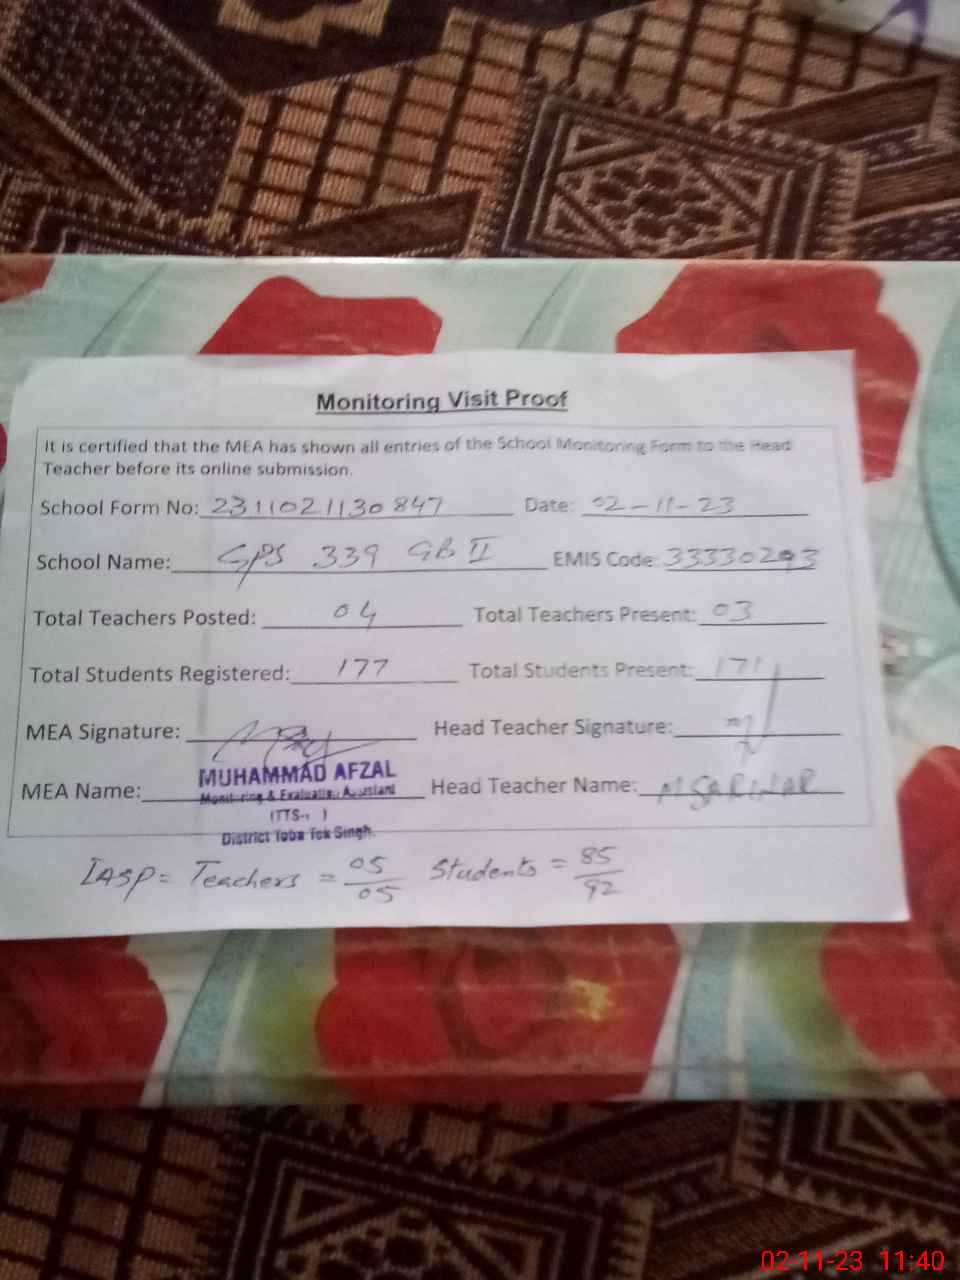 Monitoring Visit Proof
It is certified that the MEA has shown all entries of the School Monitoring Form to the Head
Teacher before its online submission.
School Form No: 2311021130847 Date: 02-11-23
School Name: GPS 339 GB II EMIS Code: 33330293
Total Teachers Posted: 04 Total Teachers Present: 03
Total Students Registered: 177 Total Students Present: 171
MEA Signature: Head Teacher Signature:
MEA Name: MUHAMMAD AFZAL Head Teacher Name: M SARWAR
Monitoring & Evaluation Assistant
(TTS- )
District Toba Tek Singh.
IASP = Teachers = 05/05 Students = 85/92
02-11-23 11:40